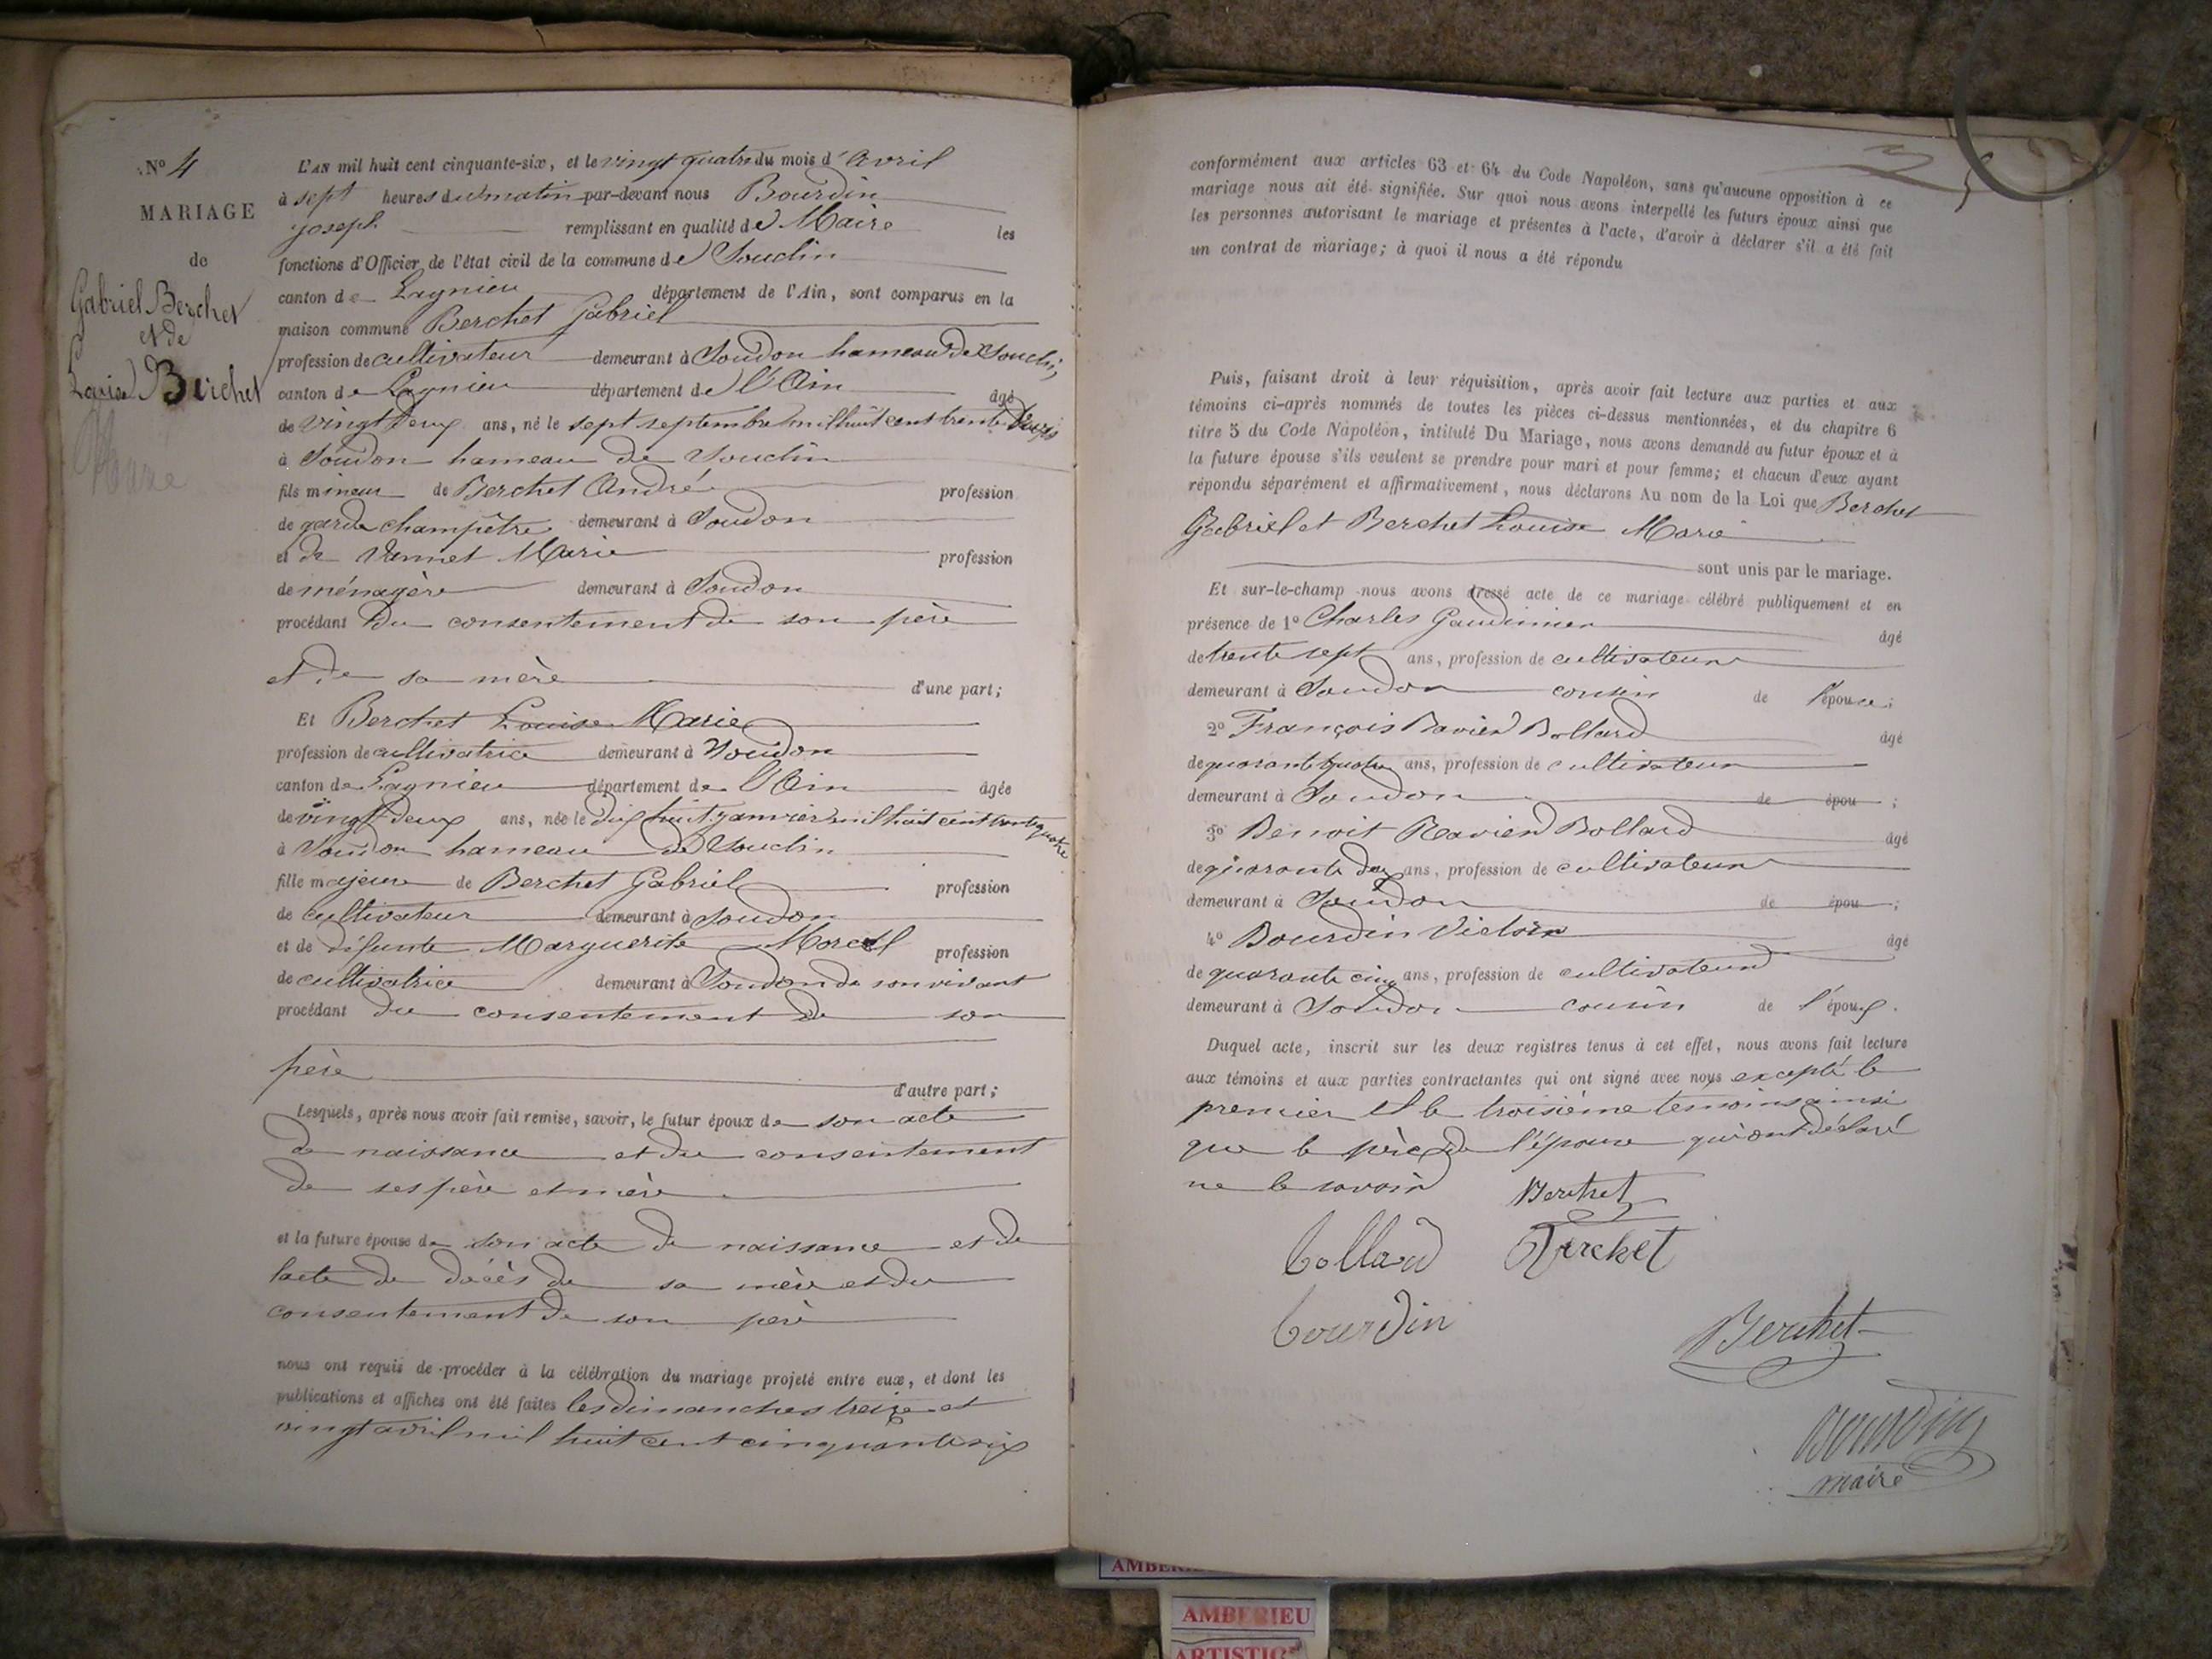 N° 4
MARIAGE
de
Gabriel Berchet
et de
Louise Berchet
Marie
L'AN mil huit cent cinquante-six, et le vingt quatre du mois d'Avril
à sept heures du matin par-devant nous Bourdin
Joseph remplissant en qualité de Maire les
fonctions d'Officier de l'état civil de la commune de Souclin
canton de Lagnieu département de l'Ain, sont comparus en la
maison commune Berchet Gabriel
profession de cultivateur demeurant à Soudon hameau de Souclin
canton de Lagnieu département de l'Ain âgé
de vingt deux ans, né le sept septembre mil huit cent trente trois
à Soudon hameau de Souclin
fils mineur de Berchet André profession
de garde champêtre demeurant à Soudon
et de Vannet Marie profession
de ménagère demeurant à Soudon
procédant du consentement de son père
et de sa mère d'une part;
Et Berchet Louise Marie
profession de cultivatrice demeurant à Soudon
canton de Lagnieu département de l'Ain âgée
de vingt deux ans, née le dix huit janvier mil huit cent trente quatre
à Soudon hameau de Souclin
fille majeure de Berchet Gabriel profession
de cultivateur demeurant à Soudon
et de défunte Marguerite Morel profession
de cultivatrice demeurant à Soudon de son vivant
procédant du consentement de son
père
d'autre part;
Lesquels, après nous avoir fait remise, savoir, le futur époux de son acte
de naissance et du consentement
de ses père et mère
et la future épouse de son acte de naissance et de
l'acte de décès de sa mère et du
consentement de son père
nous ont requis de procéder à la célébration du mariage projeté entre eux, et dont les
publications et affiches ont été faites les dimanches treize et
vingt avril mil huit cent cinquante six
conformément aux articles 63 et 64 du Code Napoléon, sans qu'aucune opposition à ce
mariage nous ait été signifiée. Sur quoi nous avons interpellé les futurs époux ainsi que
les personnes autorisant le mariage et présentes à l'acte, d'avoir à déclarer s'il a été fait
un contrat de mariage; à quoi il nous a été répondu
Puis, faisant droit à leur réquisition, après avoir fait lecture aux parties et aux
témoins ci-après nommés de toutes les pièces ci-dessus mentionnées, et du chapitre 6
titre 5 du Code Napoléon, intitulé Du Mariage, nous avons demandé au futur époux et à
la future épouse s'ils veulent se prendre pour mari et pour femme; et chacun d'eux ayant
répondu séparément et affirmativement, nous déclarons Au nom de la Loi que Berchet
Gabriel et Berchet Louise Marie
sont unis par le mariage.
Et sur-le-champ nous avons dressé acte de ce mariage célébré publiquement et en
présence de 1° Charles âgé
de trente sept ans, profession de cultivateur
demeurant à Soudon cousin de l'épouse;
2° François Ravier Bollard âgé
de quarante quatre ans, profession de cultivateur
demeurant à Soudon de épou ;
3° Benoit Ravier Bollard âgé
de quarante deux ans, profession de cultivateur
demeurant à Soudon de épou ;
4° Bourdin Victor âgé
de quarante cinq ans, profession de cultivateur
demeurant à Soudon cousin de l'époux.
Duquel acte, inscrit sur les deux registres tenus à cet effet, nous avons fait lecture
aux témoins et aux parties contractantes qui ont signé avec nous excepté le
premier et le troisième temoins ainsi
que le père de l'épouse qui ont déclaré
ne le savoir Berchet
bollard Berchet
bourdin
Berchet
Bourdin
maire
AMBERIEU
ARTISTIC